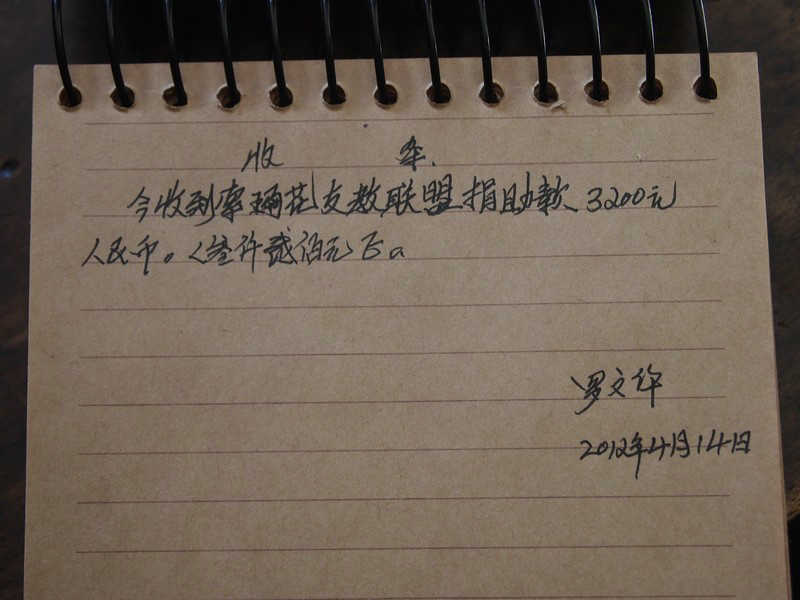 收 条
今收到索玛花支教联盟捐助款3200元
人民币。(叁仟贰佰元)
罗文华
2012年4月14日